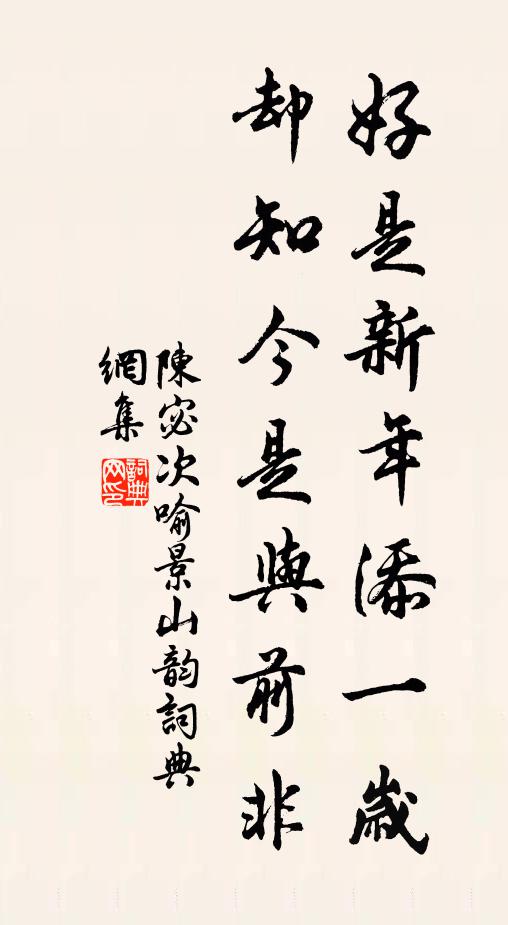 好是新年添一歲
却知今是與前非
陳宓次喻景山韵詞典
網集
詞典網印